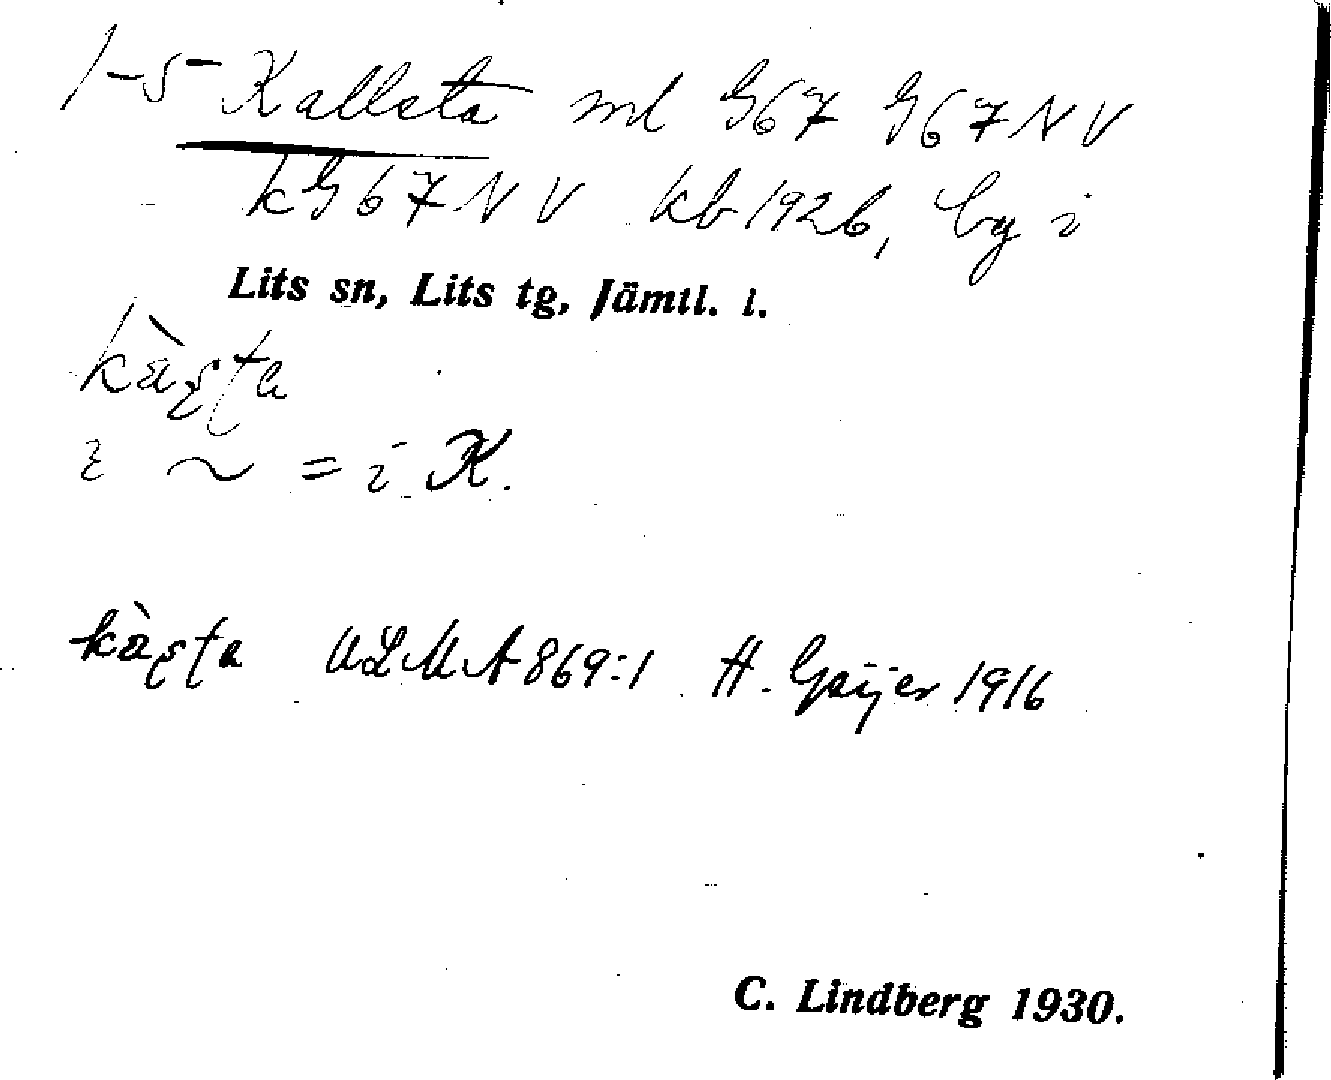 1-5 Kallsta ml G67 G67NV
kG67NV kb1926, by i
Lits sn, Lits tg, Jämtl. l.
i ~ = i K.
ULMA 869:1 H. Geijer 1916
C. Lindberg 1930.